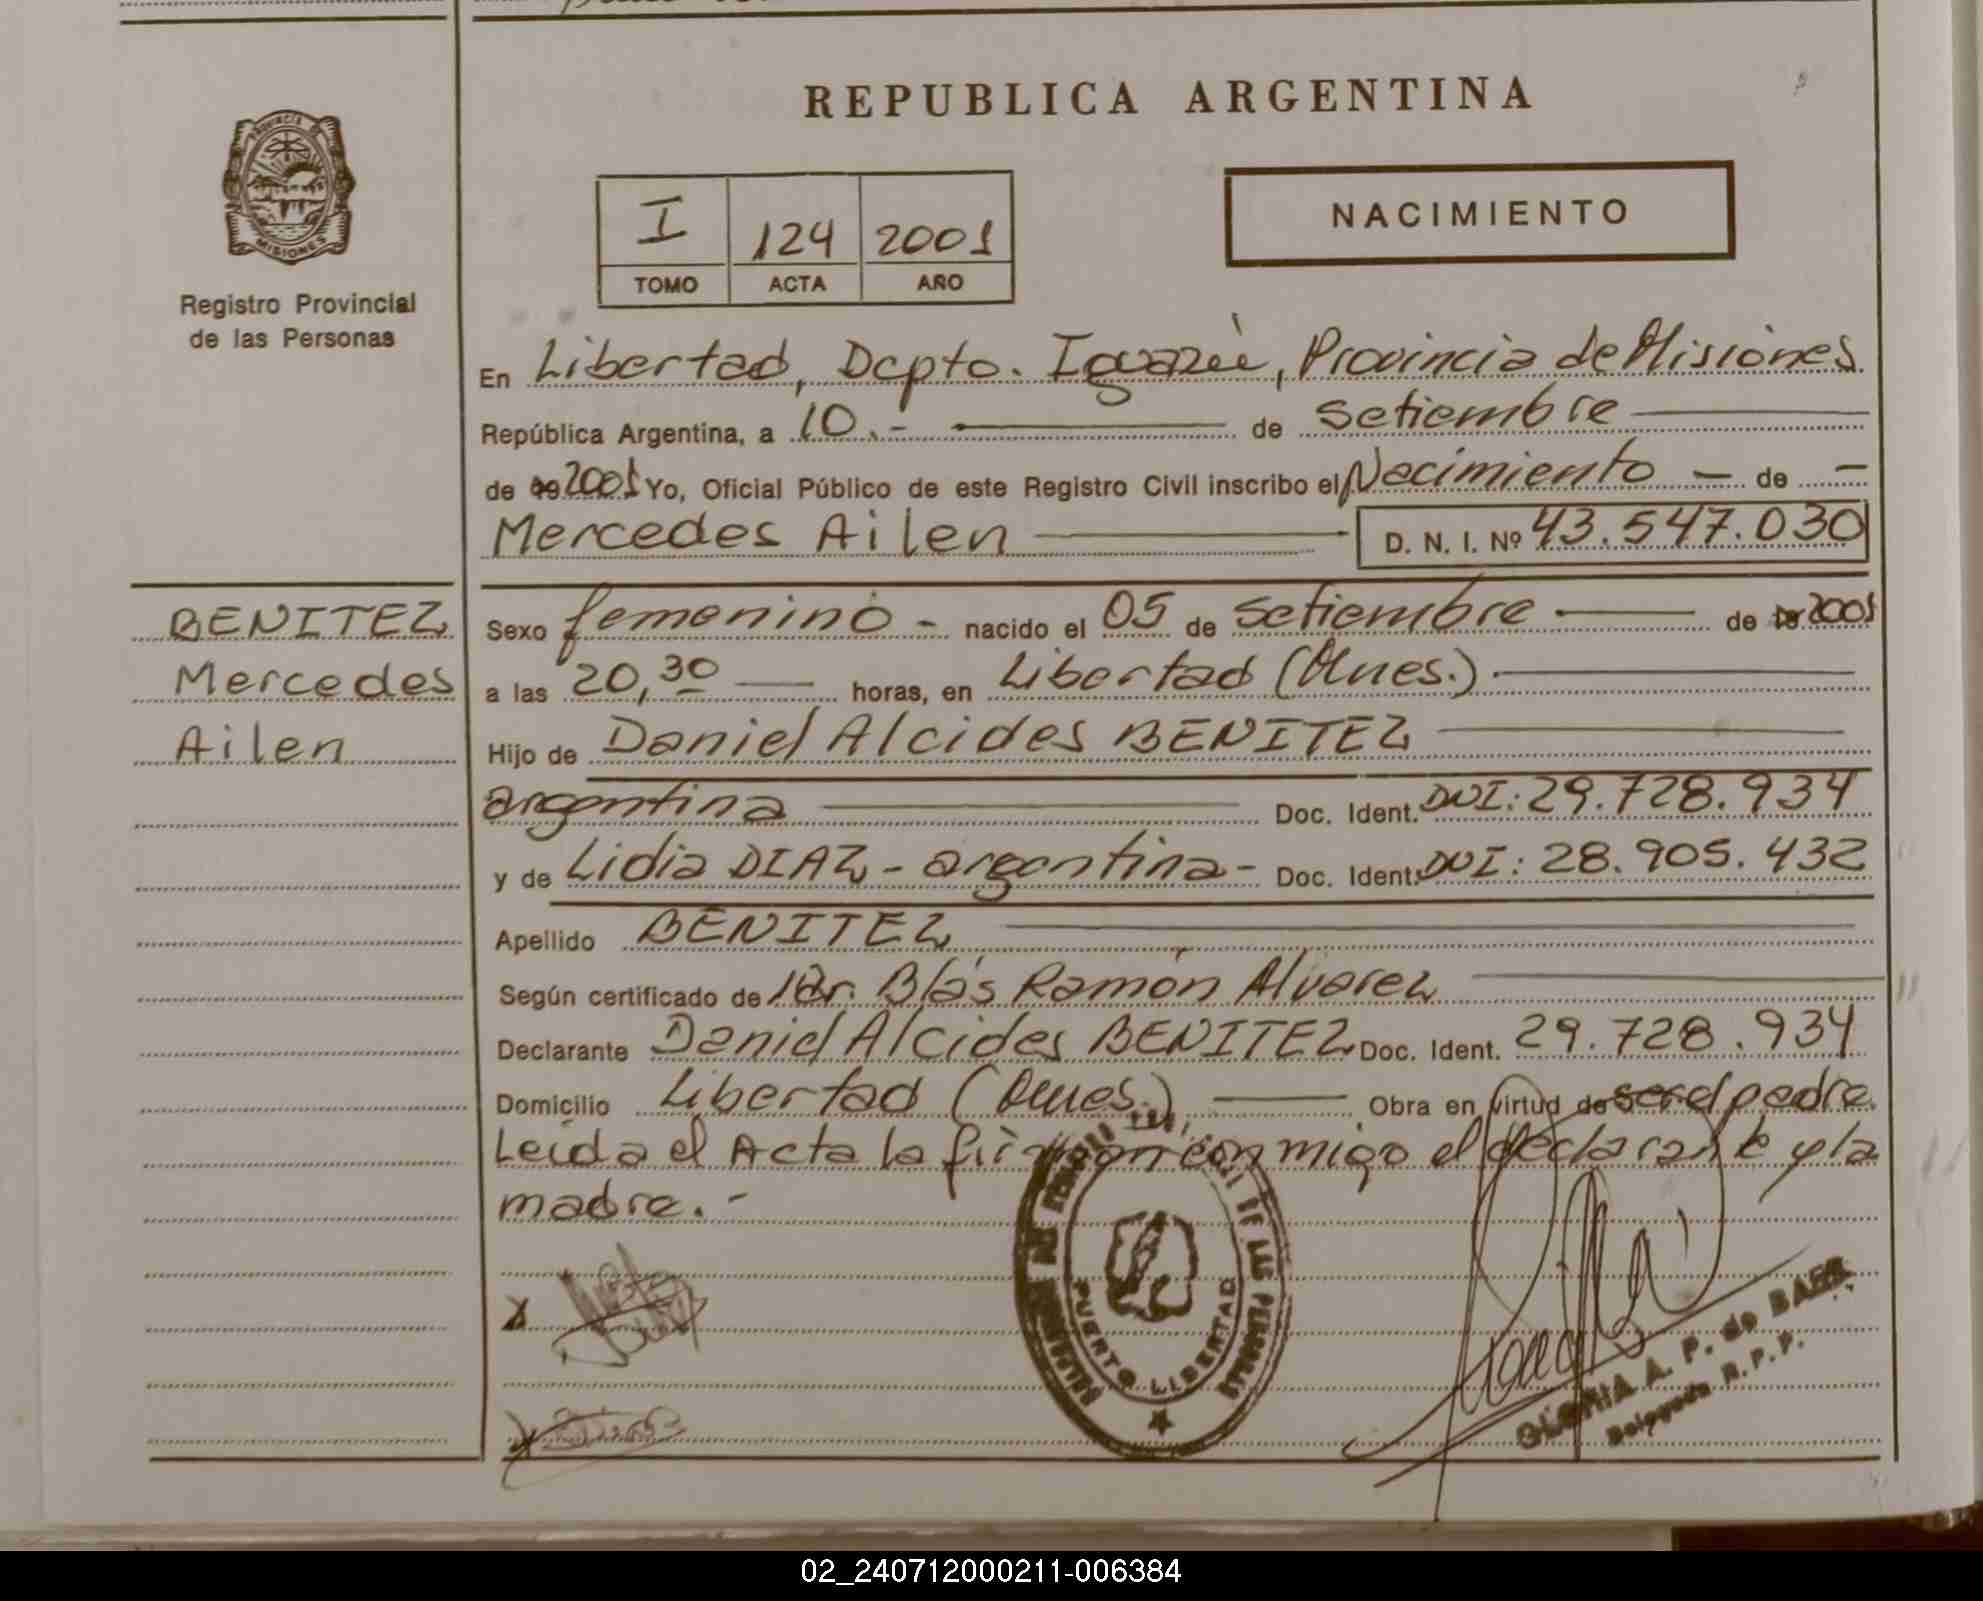 REPUBLICA ARGENTINA
PROVINCIA DE
MISIONES
Registro Provincial
de las Personas
I 124 2001
TOMO ACTA AÑO
NACIMIENTO
En Libertad, Dcpto. Iguazú, Provincia de Misiones
República Argentina, a 10.- de Setiembre
de 19 2001 Yo, Oficial Público de este Registro Civil inscribo el Nacimiento — de —
Mercedes Ailen D. N. I. Nº 43.547.030
BENITEZ
Mercedes
Ailen
Sexo femenino - nacido el 05 de Setiembre de 19 2001
a las 20,30 horas, en Libertad (Mnes.)
Hijo de Daniel Alcides BENITEZ
argentina Doc. Ident. DNI: 29.728.934
y de Lidia DIAZ - argentina - Doc. Ident. DNI: 28.905.432
Apellido BENITEZ
Según certificado de Dr. Blás Ramón Alvarez
Declarante Daniel Alcides BENITEZ Doc. Ident. 29.728.934
Domicilio Libertad (Mnes.), Obra en virtud de ser el padre.
Leída el Acta la firman conmigo el declarante y la
madre.-
PUERTO LIBERTAD
A. P. de BAEZ
Delegada R.P.P.
02_240712000211-006384